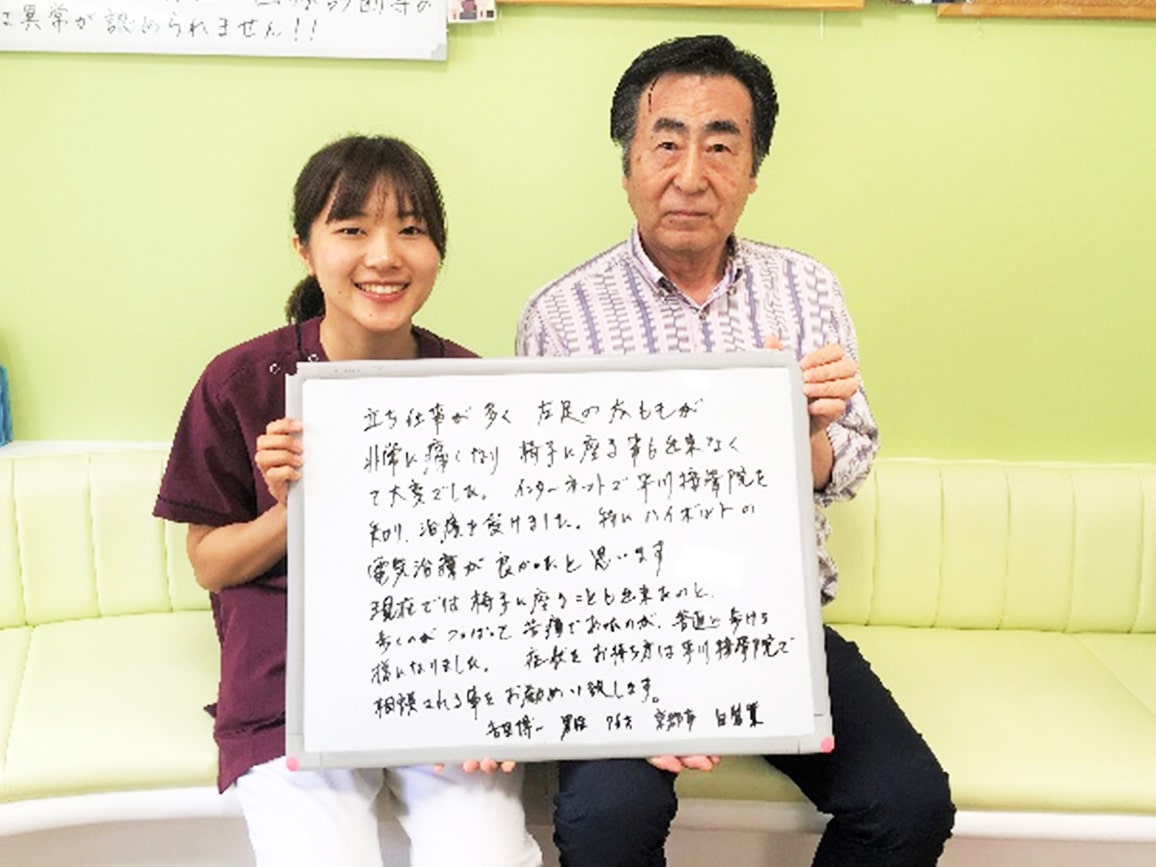 異常が認められません!!
立ち仕事が多く 左足の太ももが
非常に痛くなり 椅子に座る事も出来なく
て大変でした。 インターネットで平川接骨院を
知り、治療を受けました。特にハイボルトの
電気治療が良かったと思います
現在では椅子に座ることも出来
歩くのがつっぱって苦痛でお 普通に歩ける
様になりました。 症状をお持ち方は平川接骨院で
相談される事をお勧めい致します。
博一 男性 76才 京都市 自営業